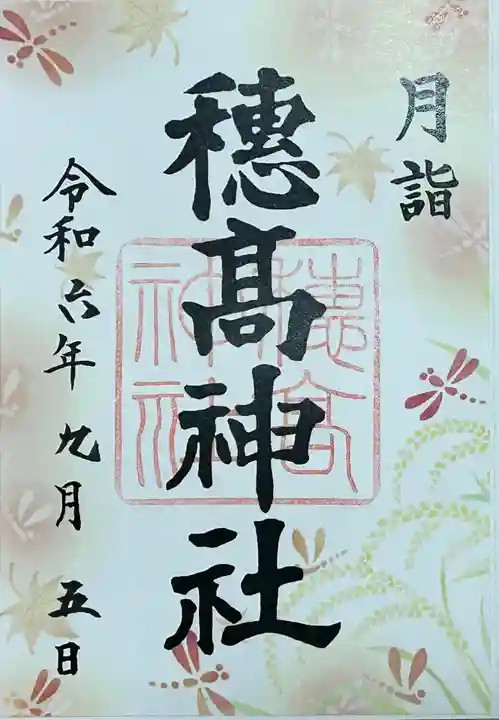 月詣
穗髙神社
穗髙
神社
令和六年九月五日